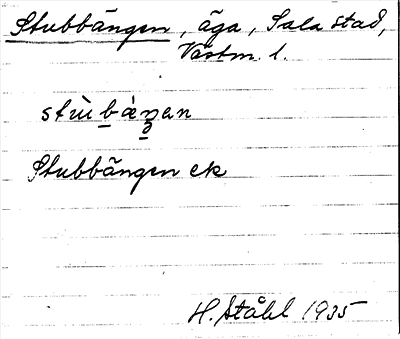 Stubbängen, äga, Sala stad,
Västm. l.
Stubbängen ek
H. Ståhl 1935